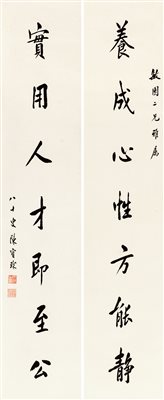 二兄雅属
養成心性方能靜
實用人才即至公
八十叟陳寶琛